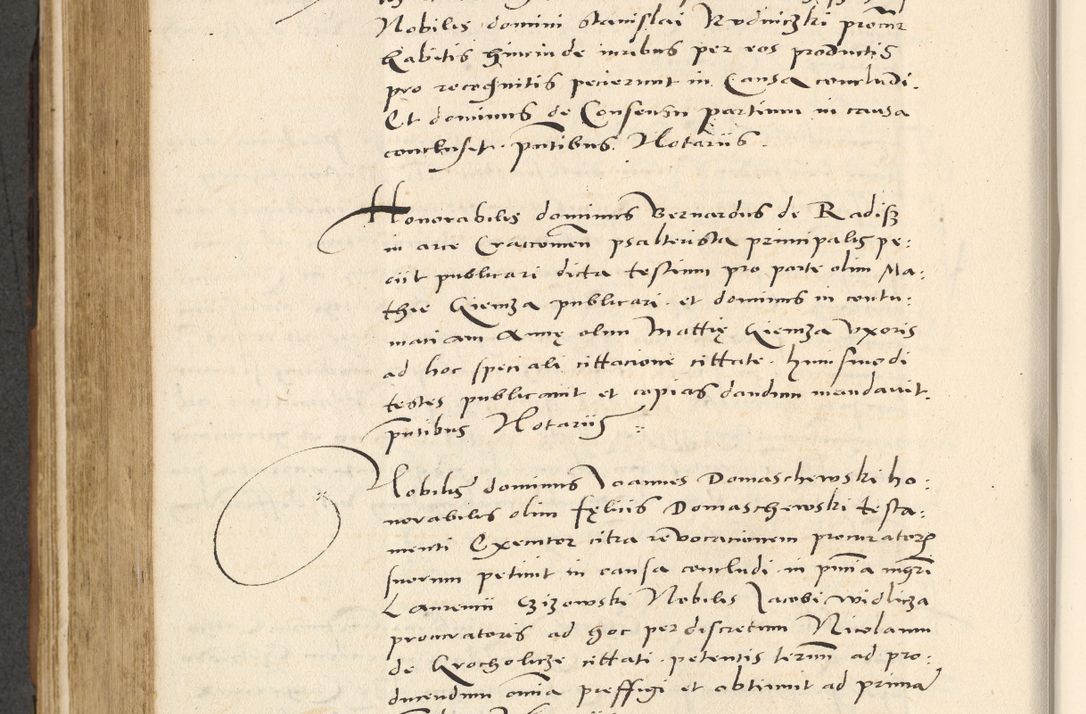 Nobilis domini Stanislai Rudniczki procur
habitis hincinde iuribus per eos productis
pro recognitis pecierunt in Causa concludi.
Et dominus de Consensu partium in causa
conclusit. pntibus Notariis.
Honorabilis dominus Bernardus de Radissz
in arce Cracovien psalterista principalis pe:
ciit publicari dicta testium pro parte olim Ma:
thie Kiemza publicari. et dominus in contu:
maciam Annę olim Mattię Kiemza Uxoris
ad hoc speciali cittacione cittate. huiusmodi
testes publicavit et copias dandum mandavit.
pntibus Notariis :
Nobilis dominus Joannes Domaschewski ho:
norabilis olim fęlicis Domaschewski testa:
menti Executor citra revocacionem procuratorum
suorum petiuit in causa concludi in pntia mgri
Laurencii Czizowski Nobilis Jacobi Widlicza
procuratoris ad hoc per discretum Nicolaum
de Krocholicze cittati. petentis termin ad pro:
ducendum omnia preffigi et obtinuit ad prima